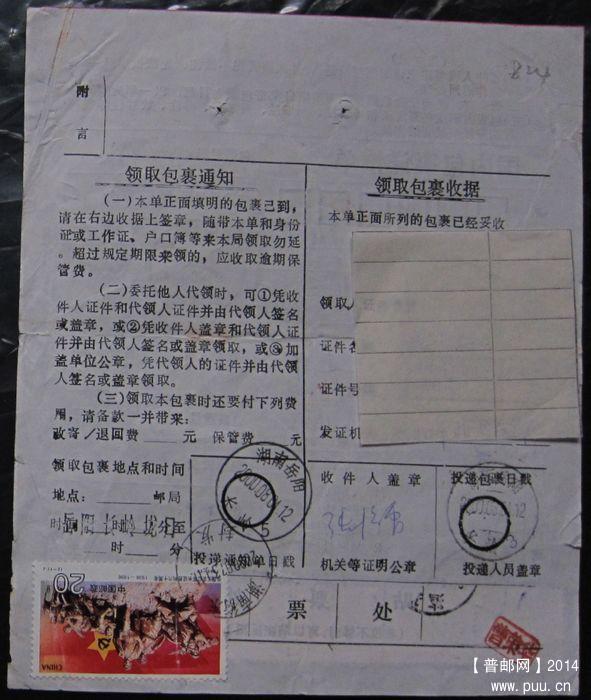 824
附
言
领取包裹通知
(一)本单正面填明的包裹已到,
请在右边收据上签章,随带本单和身份
证或工作证、户口簿等来本局领取勿延
。超过规定期限来领的,应收取逾期保
管费。
(二)委托他人代领时,可①凭收
件人证件和代领人证件并由代领人签名
或盖章,或②凭收件人盖章和代领人证
件并由代领人签名或盖章领取,或③加
盖单位公章,凭代领人的证件并由代领
人签名或盖章领取。
(三)领取本包裹时还要付下列费
用,请备款一并带来:
改寄/退回费 元 保管费 元
领取包裹地点和时间
地点: 邮局
时间 时 分至
时 分
投递通知单日戳
湖南岳阳
领取包裹收据
本单正面所列的包裹已经妥收
领取人
证件名
证件号
发证机
收件人盖章
机关等证明公章
投递包裹日戳
投递人员盖章
票 处
20
中国邮政
CHINA
【普邮网】2014
www.puu.cn